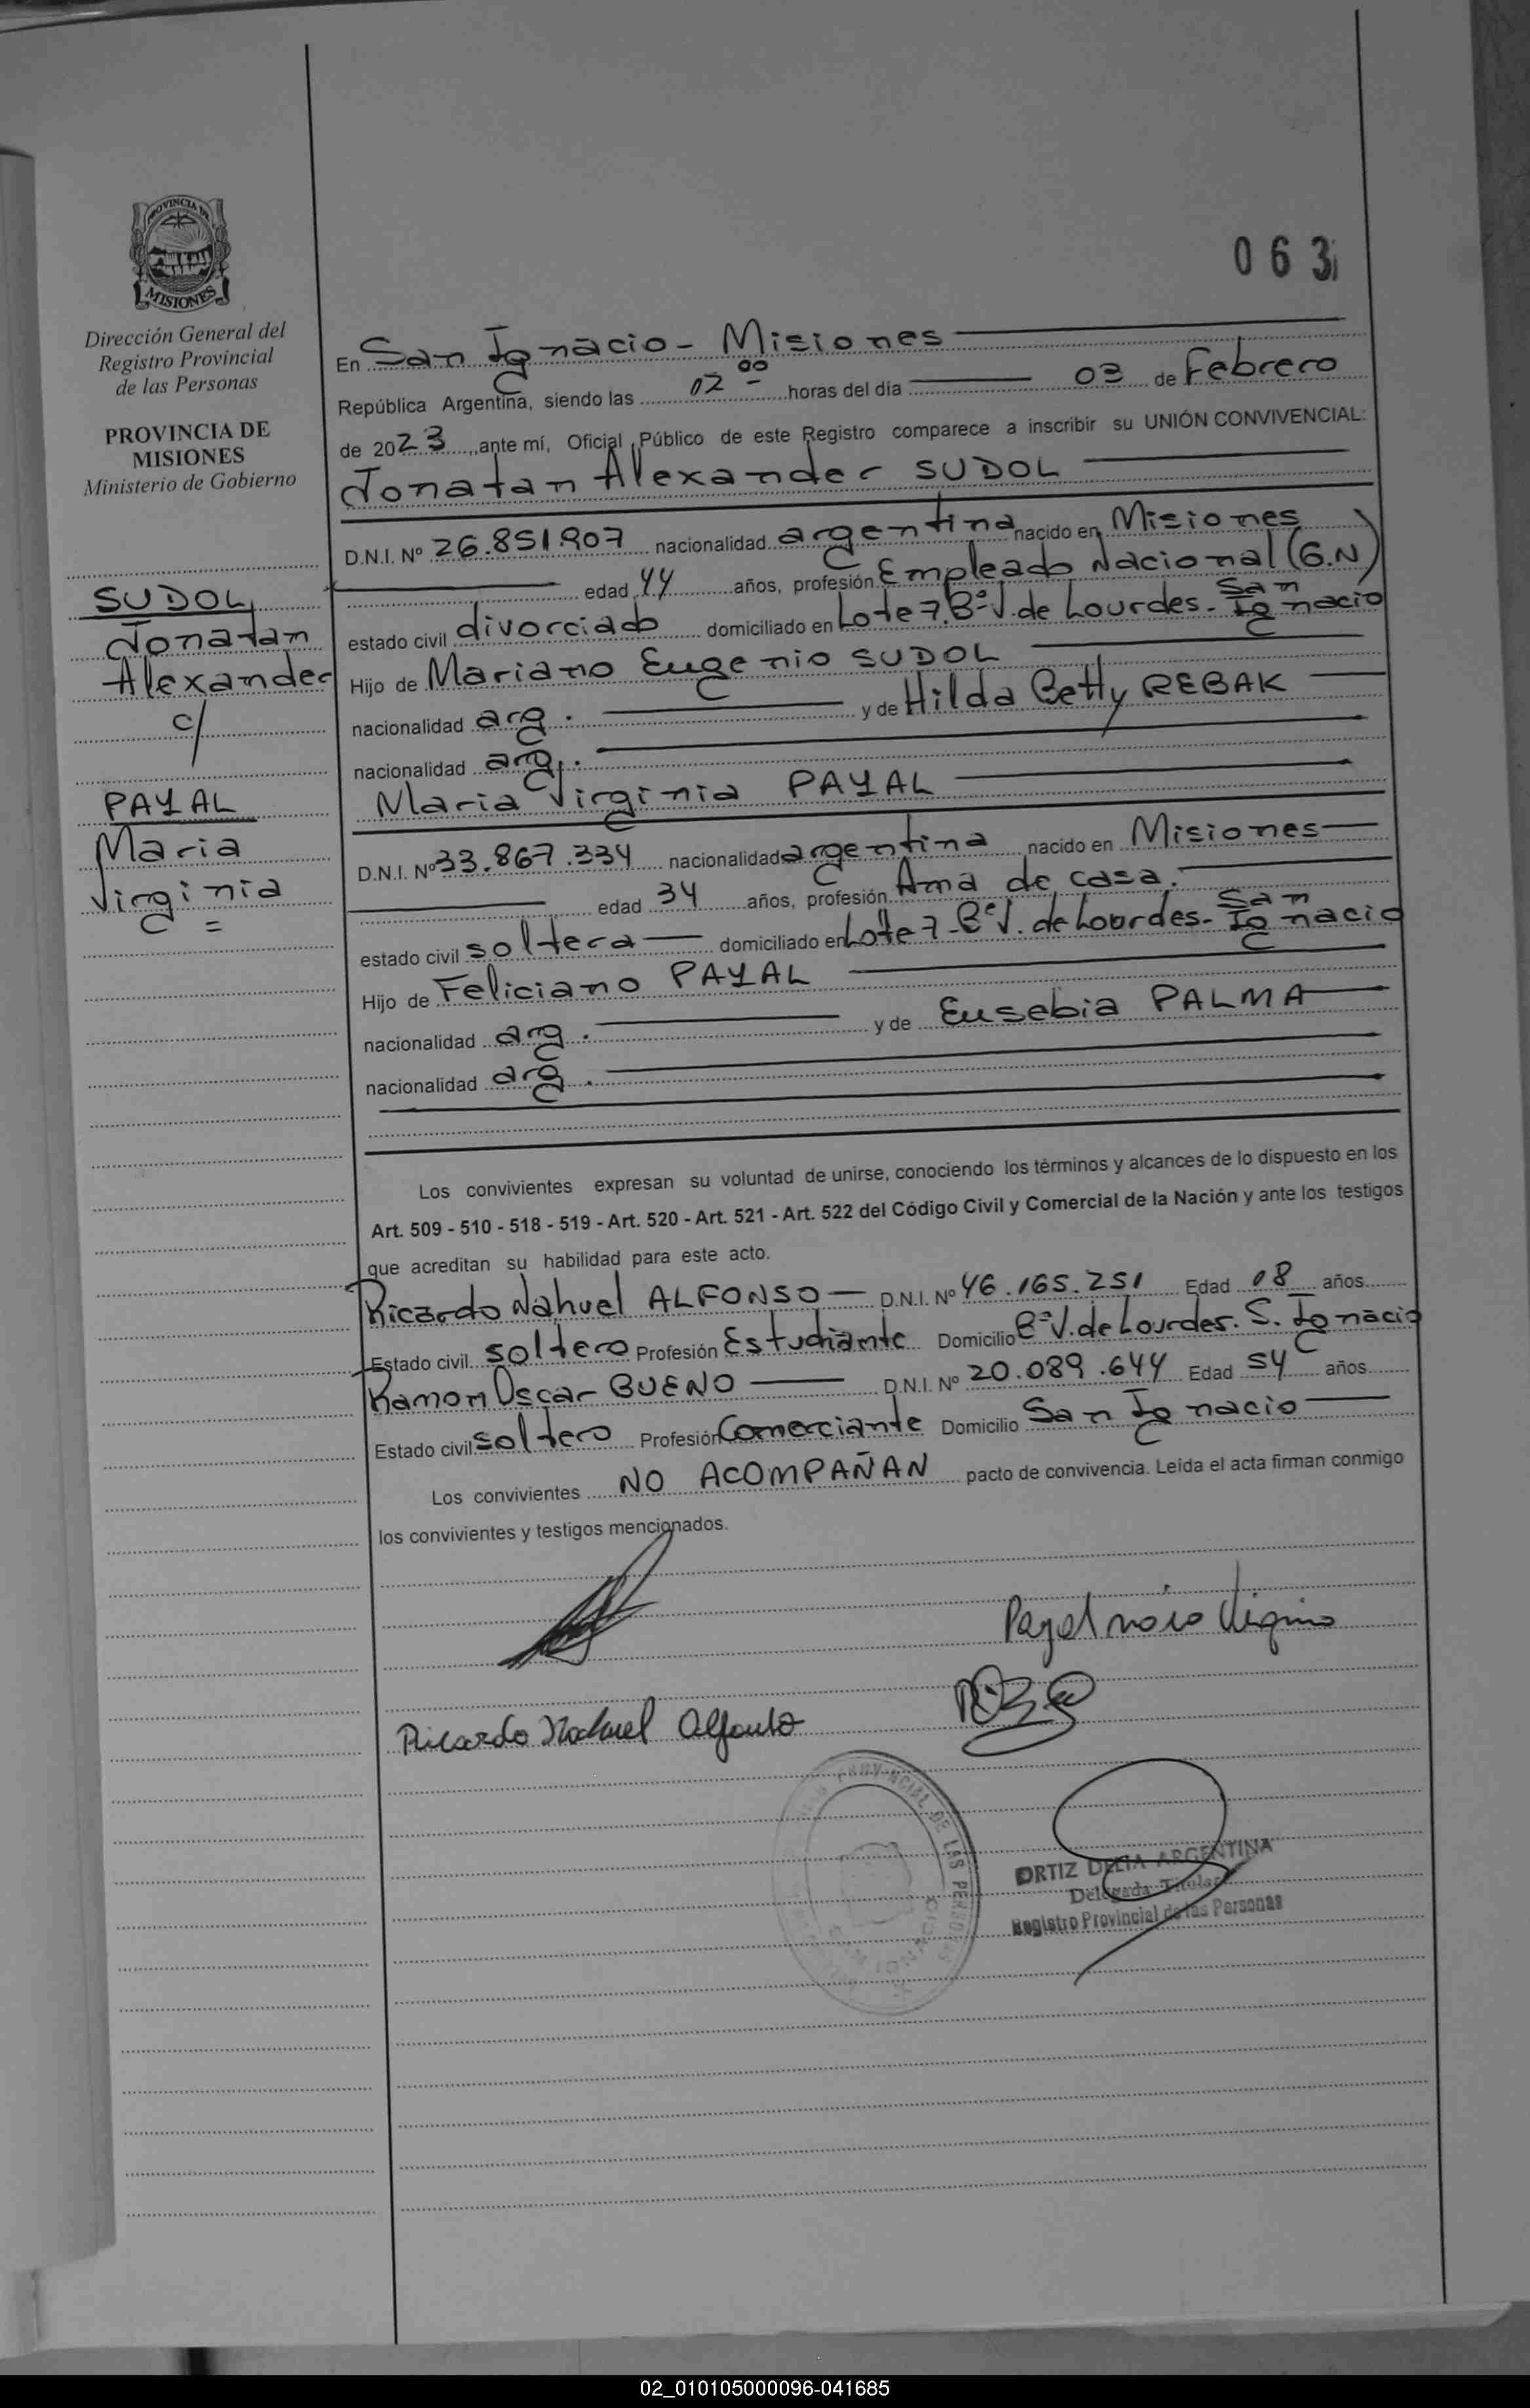 063
PROVINCIA DE
MISIONES
Dirección General del
Registro Provincial
de las Personas
PROVINCIA DE
MISIONES
Ministerio de Gobierno
SUDOL
Jonatan
Alexander
c/
PAYAL
Maria
Virginia
=
En San Ignacio - Misiones
República Argentina, siendo las 02 00 horas del día 03 de Febrero
de 2023, ante mí, Oficial Público de este Registro comparece a inscribir su UNIÓN CONVIVENCIAL:
Jonatan Alexander SUDOL
D.N.I. Nº 26.851.907 nacionalidad argentina nacido en Misiones
edad 44 años, profesión Empleado Nacional (G.N)
estado civil divorciado domiciliado en Lote 7. Bº V. de Lourdes - San Ignacio
Hijo de Mariano Eugenio SUDOL
nacionalidad arg. y de Hilda Betty REBAK
nacionalidad arg.
Maria Virginia PAYAL
D.N.I. Nº 33.867.334 nacionalidad argentina nacido en Misiones
edad 34 años, profesión Ama de casa.
estado civil soltera domiciliado en Lote 7 - Bº V. de Lourdes - San Ignacio
Hijo de Feliciano PAYAL
nacionalidad arg. y de Eusebia PALMA
nacionalidad arg.
Los convivientes expresan su voluntad de unirse, conociendo los términos y alcances de lo dispuesto en los
Art. 509 - 510 - 518 - 519 - Art. 520 - Art. 521 - Art. 522 del Código Civil y Comercial de la Nación y ante los testigos
que acreditan su habilidad para este acto.
Ricardo Nahuel ALFONSO D.N.I. Nº 46.165.251 Edad 18 años
Estado civil soltero Profesión Estudiante Domicilio Bº V. de Lourdes. S. Ignacio
Ramon Oscar BUENO D.N.I. Nº 20.089.644 Edad 54 años
Estado civil soltero Profesión Comerciante Domicilio San Ignacio
Los convivientes NO ACOMPAÑAN pacto de convivencia. Leída el acta firman conmigo
los convivientes y testigos mencionados.
Ricardo Nahuel Alfonso
PROVINCIAL DE LAS PERSONAS
ORTIZ DELIA ARGENTINA
Delegada Titular
Registro Provincial de las Personas
02_010105000096-041685